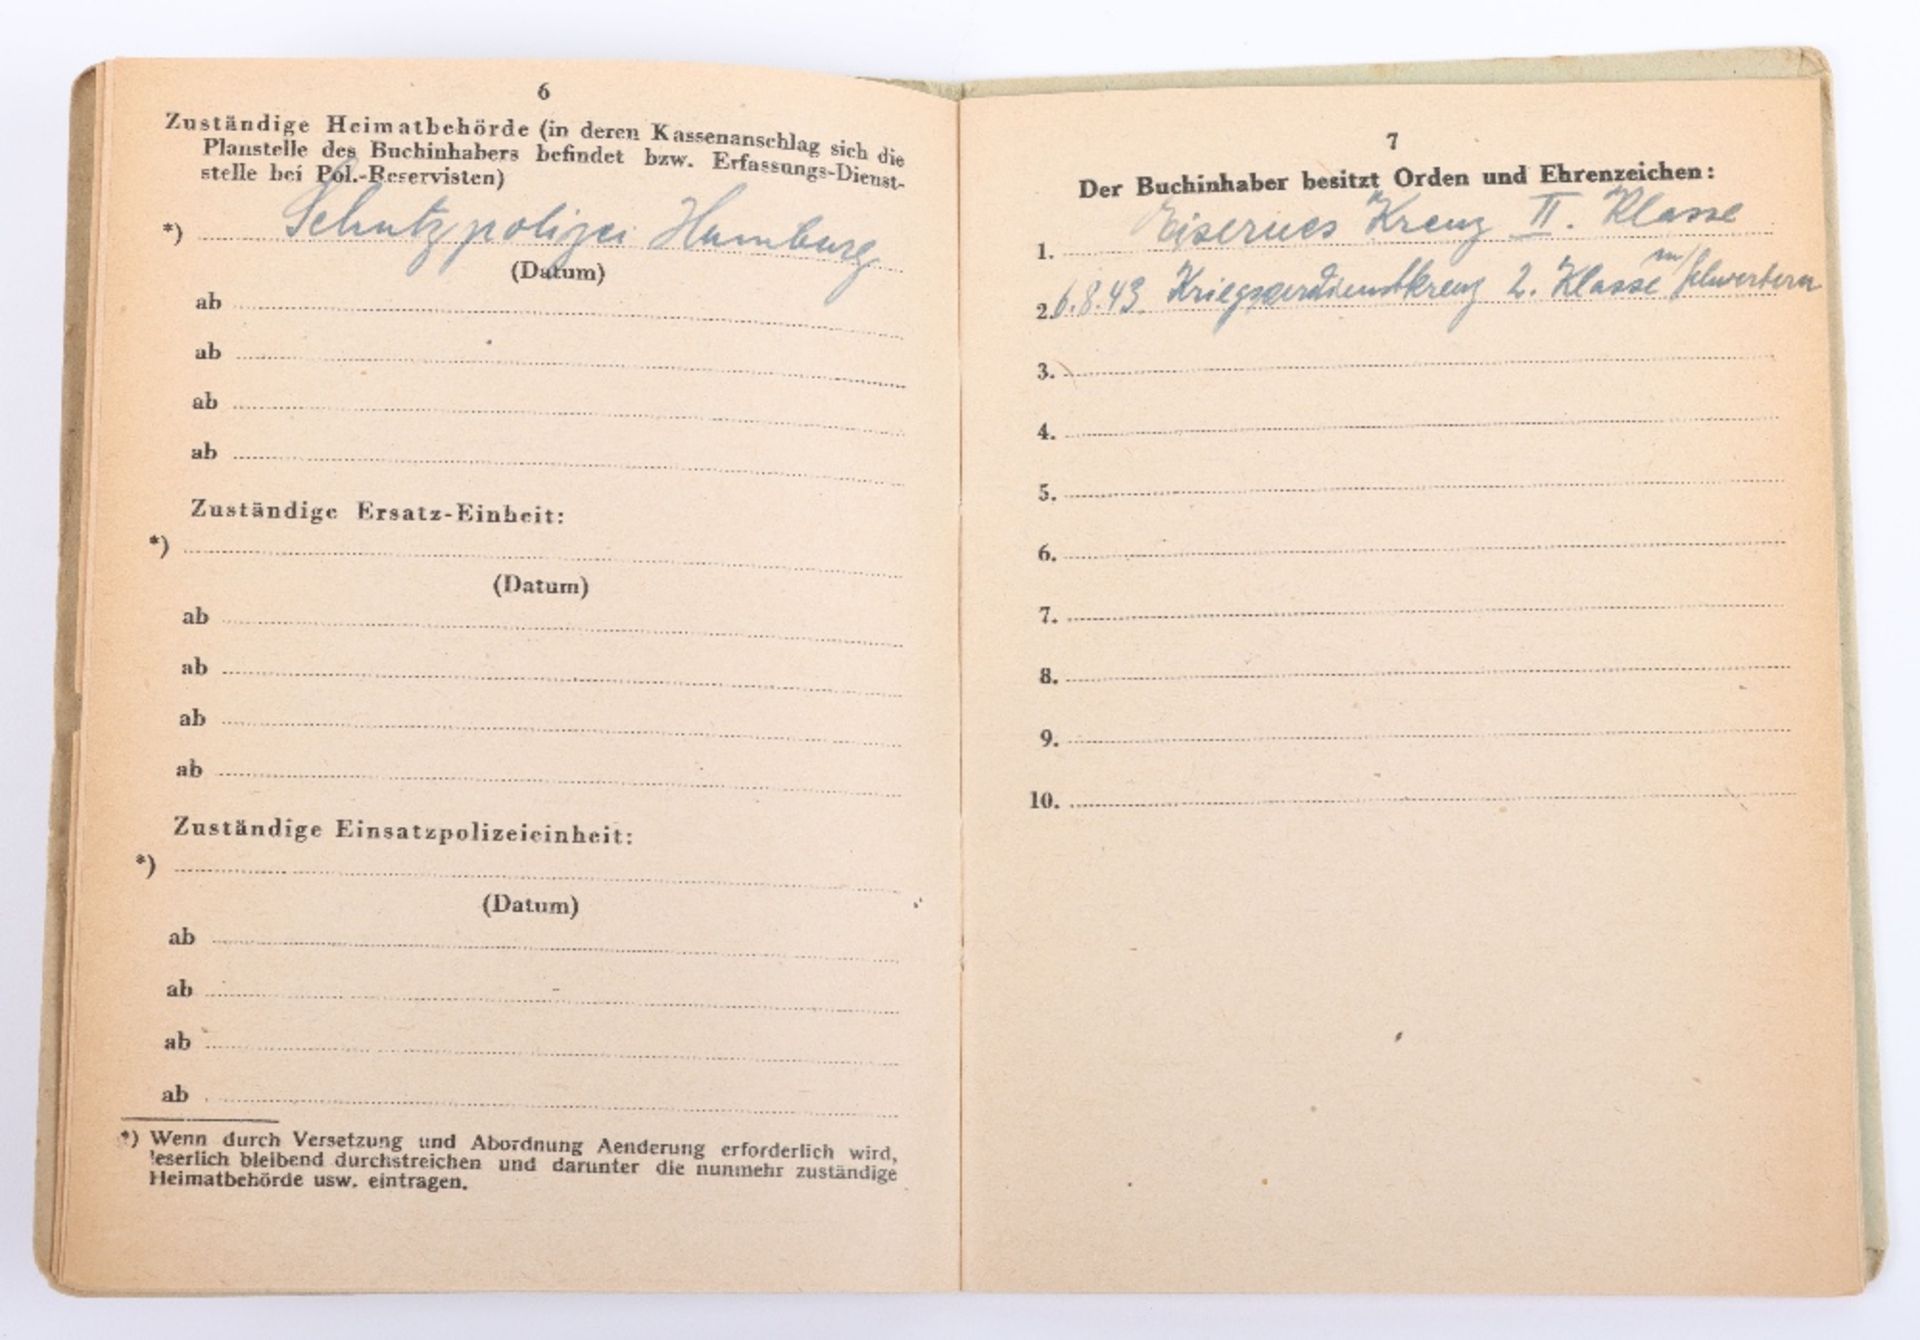 6
Zuständige Heimatbehörde (in deren Kassenanschlag sich die
Planstelle des Buchinhabers befindet bzw. Erfassungs-Dienst-
stelle bei Pol.-Reservisten)
*) Schutzpolizei Hamburg
(Datum)
ab
ab
ab
ab
Zuständige Ersatz-Einheit:
*)
(Datum)
ab
ab
ab
ab
Zuständige Einsatzpolizeieinheit:
*)
(Datum)
ab
ab
ab
ab
*) Wenn durch Versetzung und Abordnung Aenderung erforderlich wird,
leserlich bleibend durchstreichen und darunter die nunmehr zuständige
Heimatbehörde usw. eintragen.
7
Der Buchinhaber besitzt Orden und Ehrenzeichen:
1. Eisernes Kreuz II. Klasse
2. 6.8.43 Kriegsverdienstkreuz 2. Klasse m/Schwertern
3.
4.
5.
6.
7.
8.
9.
10.